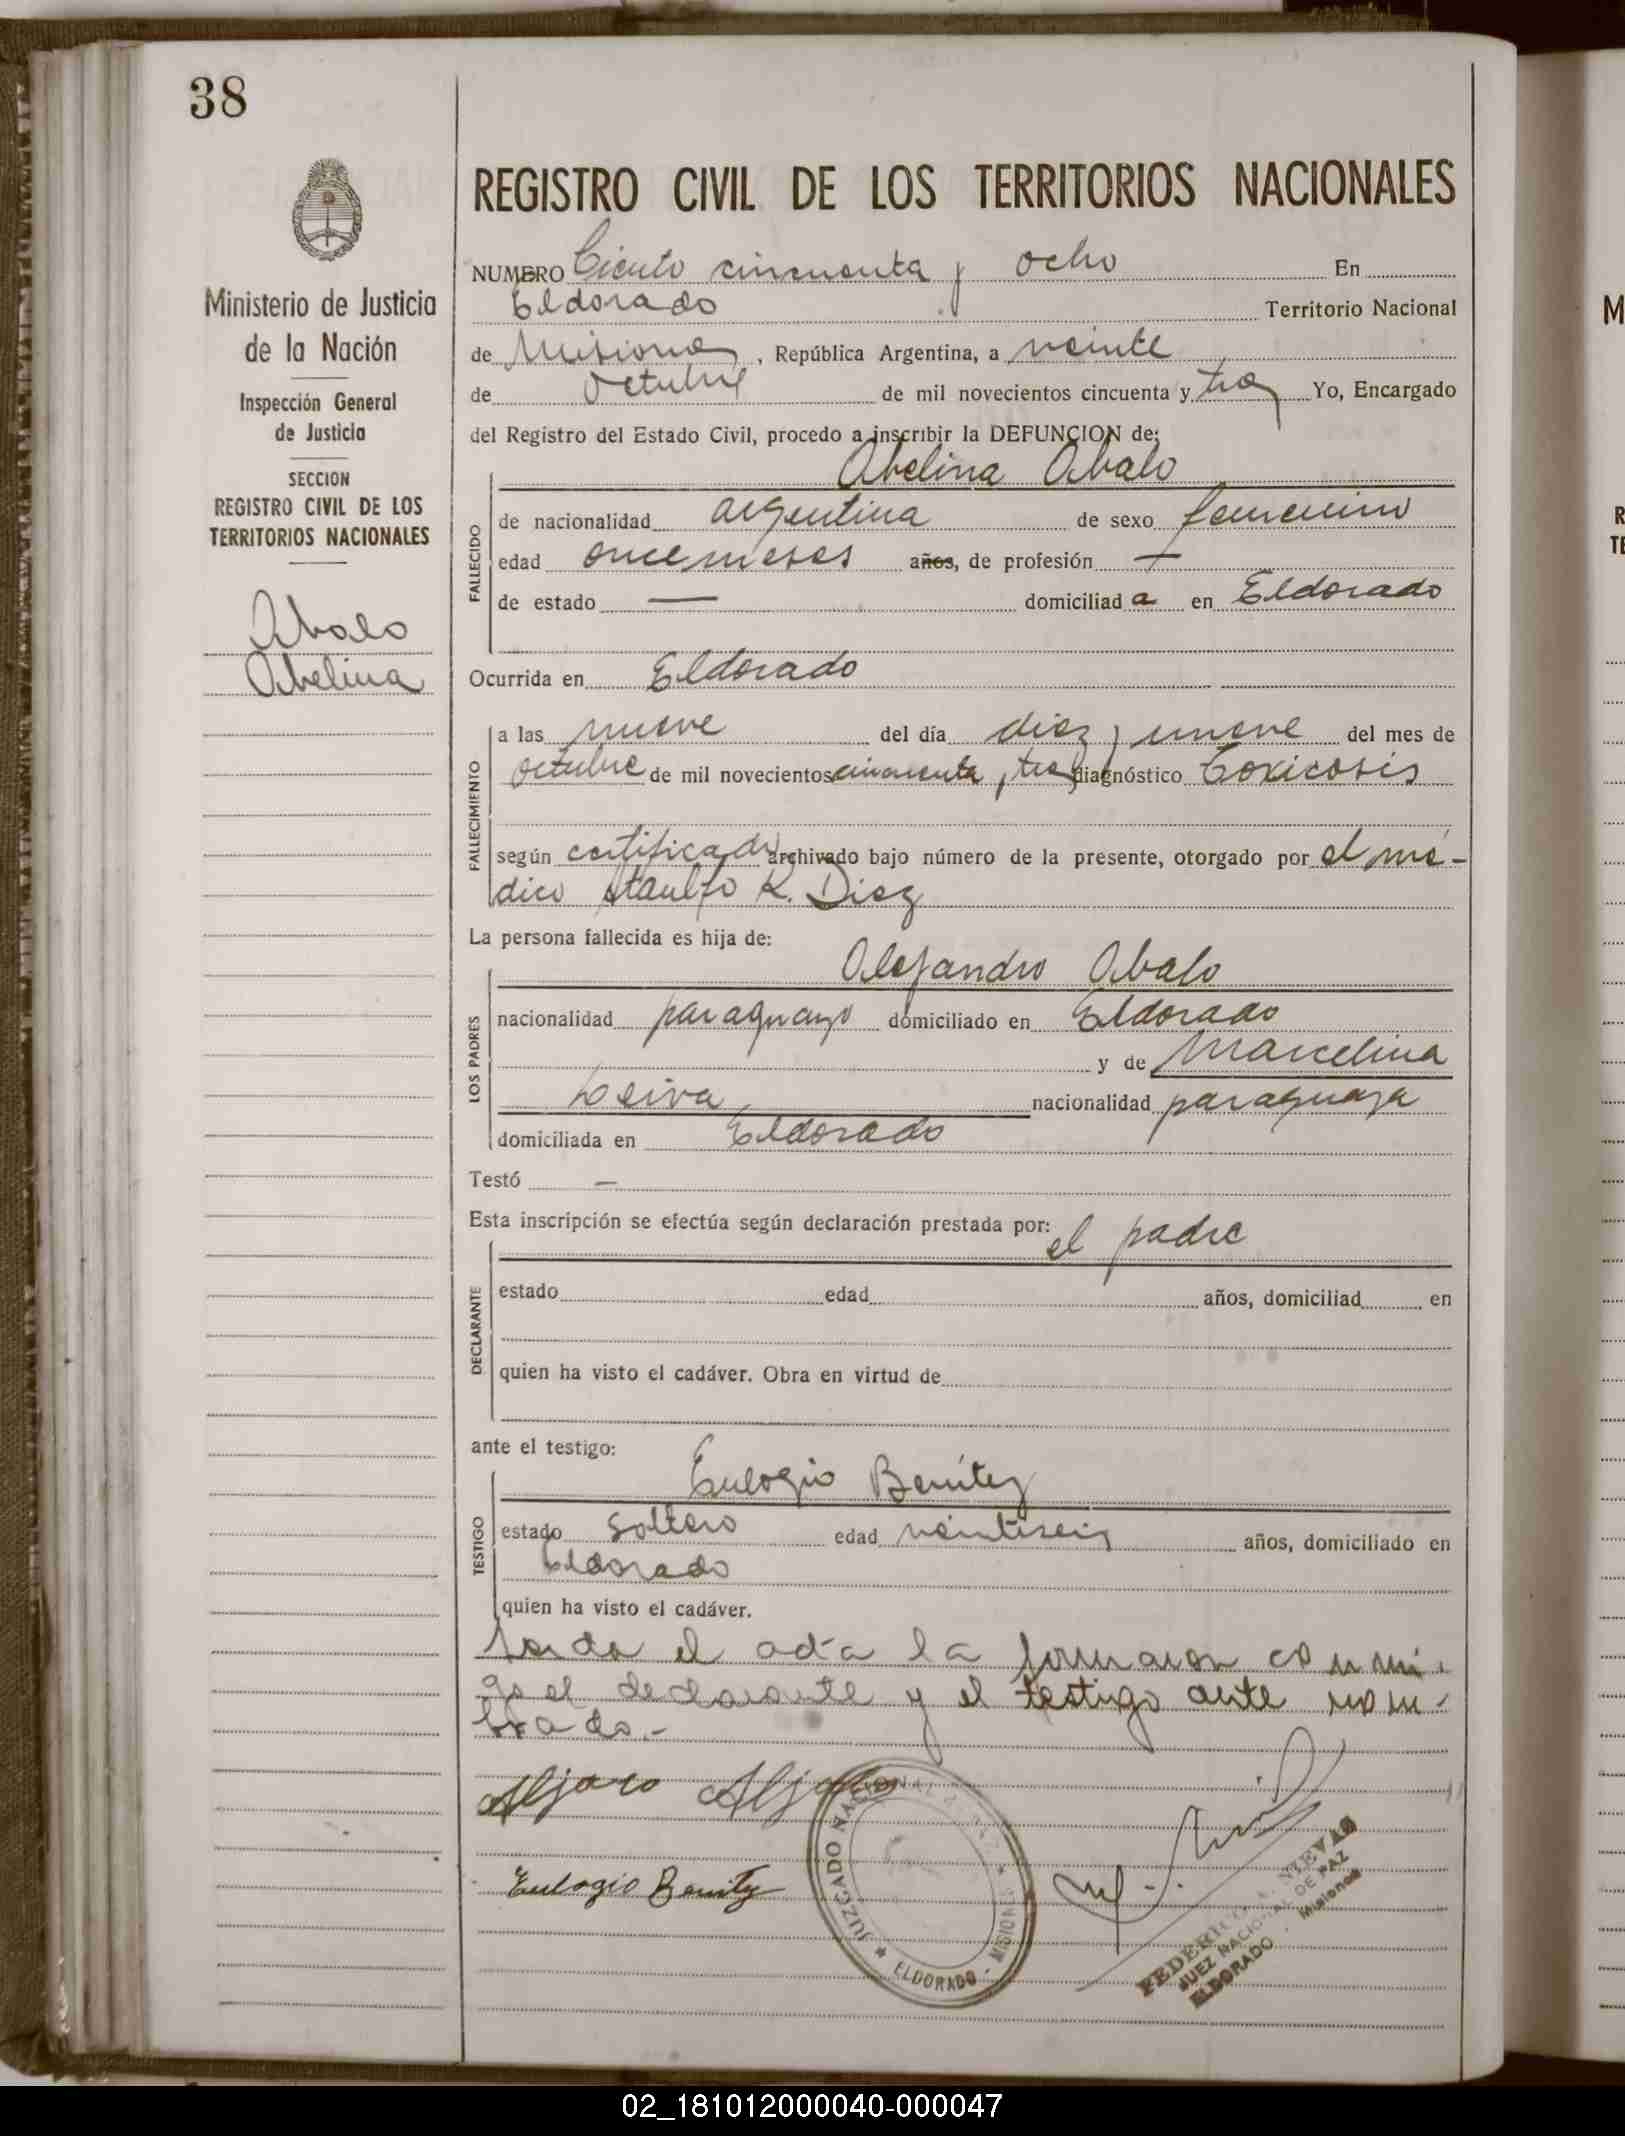 38
REGISTRO CIVIL DE LOS TERRITORIOS NACIONALES
Ministerio de Justicia
de la Nación
Inspección General
de Justicia
SECCION
REGISTRO CIVIL DE LOS
TERRITORIOS NACIONALES
Abalo
Abelina
NUMERO Ciento cincuenta y ocho En
Eldorado Territorio Nacional
de Misiones, República Argentina, a veinte
de octubre de mil novecientos cincuenta y tres Yo, Encargado
del Registro del Estado Civil, procedo a inscribir la DEFUNCION de:
Abelina Abalo
FALLECIDO
de nacionalidad argentina de sexo femenino
edad once meses años, de profesión —
de estado — domiciliada en Eldorado
Ocurrida en Eldorado
FALLECIMIENTO
a las nueve del día diez y nueve del mes de
octubre de mil novecientos cincuenta y tres diagnóstico Toxicosis
según certificado archivado bajo número de la presente, otorgado por el mé-
dico Ataulfo R. Diez
La persona fallecida es hija de:
LOS PADRES
Alejandro Abalo
nacionalidad paraguayo domiciliado en Eldorado
y de Marcelina
Leiva nacionalidad paraguaya
domiciliada en Eldorado
Testó —
Esta inscripción se efectúa según declaración prestada por:
el padre
DECLARANTE
estado edad años, domiciliad en
quien ha visto el cadáver. Obra en virtud de
ante el testigo:
TESTIGO
Eulogio Benítez
estado soltero edad veintiseis años, domiciliado en
Eldorado
quien ha visto el cadáver.
Leida el acta la firmaron conmi-
go el declarante y el testigo ante nom-
brado.-
Eulogio Benitez
JUZGADO NACIONAL DE PAZ
ELDORADO - MISIONES
FEDERICO A. NIEVAS
JUEZ NACIONAL DE PAZ
ELDORADO - Misiones
02_181012000040-000047